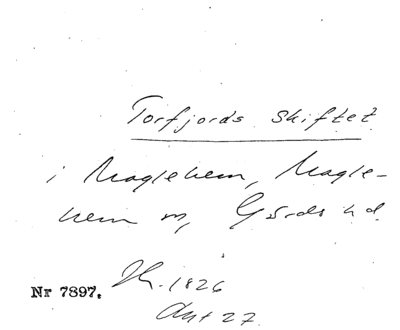 Torfjords skiftet
i Maglehem, Magle-
hem sn, Gärds hd.
Nr 7897. Sk. 1826
Akt 27.